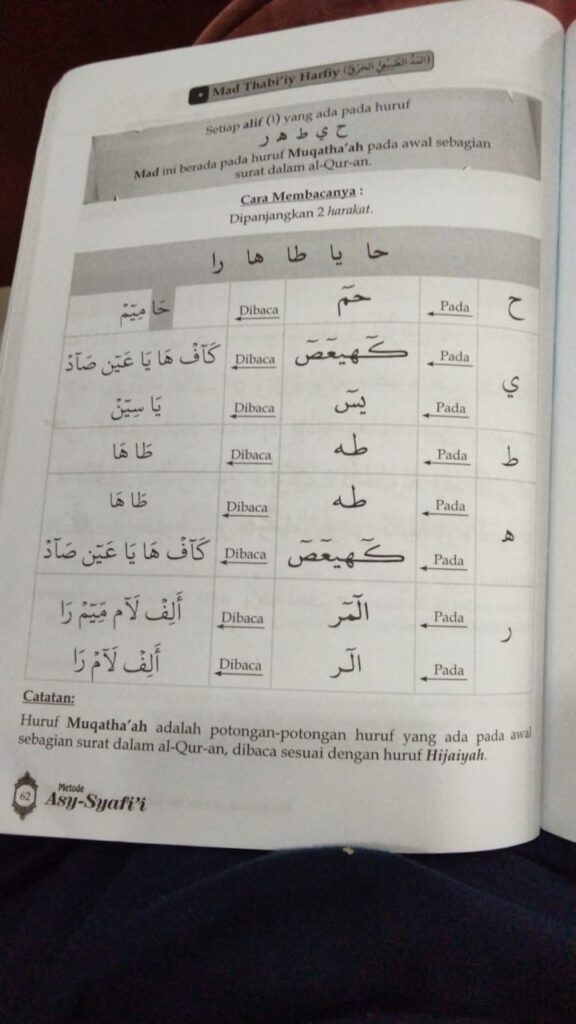 • Mad Thabi'iy Harfiy (المَدُّ الطَّبِيْعِيُّ الحَرْفِيُّ)
Setiap alif (ا) yang ada pada huruf
ح ي ط ﻫ ر
Mad ini berada pada huruf Muqatha'ah pada awal sebagian
surat dalam al-Qur-an.
Cara Membacanya :
Dipanjangkan 2 harakat.
حا يا طا ها را
ح Pada حمٓ Dibaca حَا مِيٓمْ
ي Pada كٓهيعٓصٓ Dibaca كَآفْ هَا يَا عَيٓنْ صَآدْ
Pada يسٓ Dibaca يَا سِيٓنْ
ط Pada طه Dibaca طَا هَا
ﻫ Pada طه Dibaca طَا هَا
Pada كٓهيعٓصٓ Dibaca كَآفْ هَا يَا عَيٓنْ صَآدْ
ر Pada الٓمٓر Dibaca أَلِفْ لَآم مِّيٓمْ رَا
Pada الٓر Dibaca أَلِفْ لَآمْ رَا
Catatan:
Huruf Muqatha'ah adalah potongan-potongan huruf yang ada pada awal
sebagian surat dalam al-Qur-an, dibaca sesuai dengan huruf Hijaiyah.
62
Metode
Asy-Syafi'i